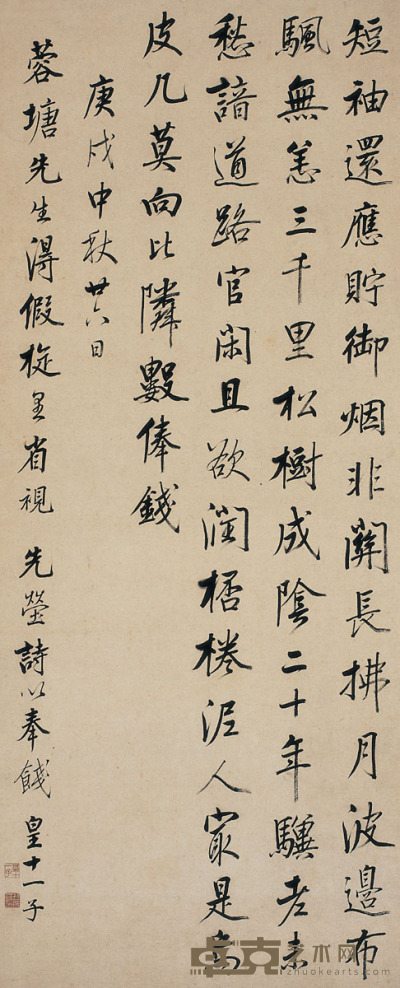 短袖還應貯御烟非關長拂月波邊布
颿無恙三千里松樹成陰二十年驥老未
愁諳道路官閑且欲潤桮棬泥人最是烏
皮几莫向比隣數俸錢
庚戌中秋廿六日
蓉塘先生得假旋里省視 先塋詩以奉餞 皇十一子
卓克艺术网
zhuokearts.com